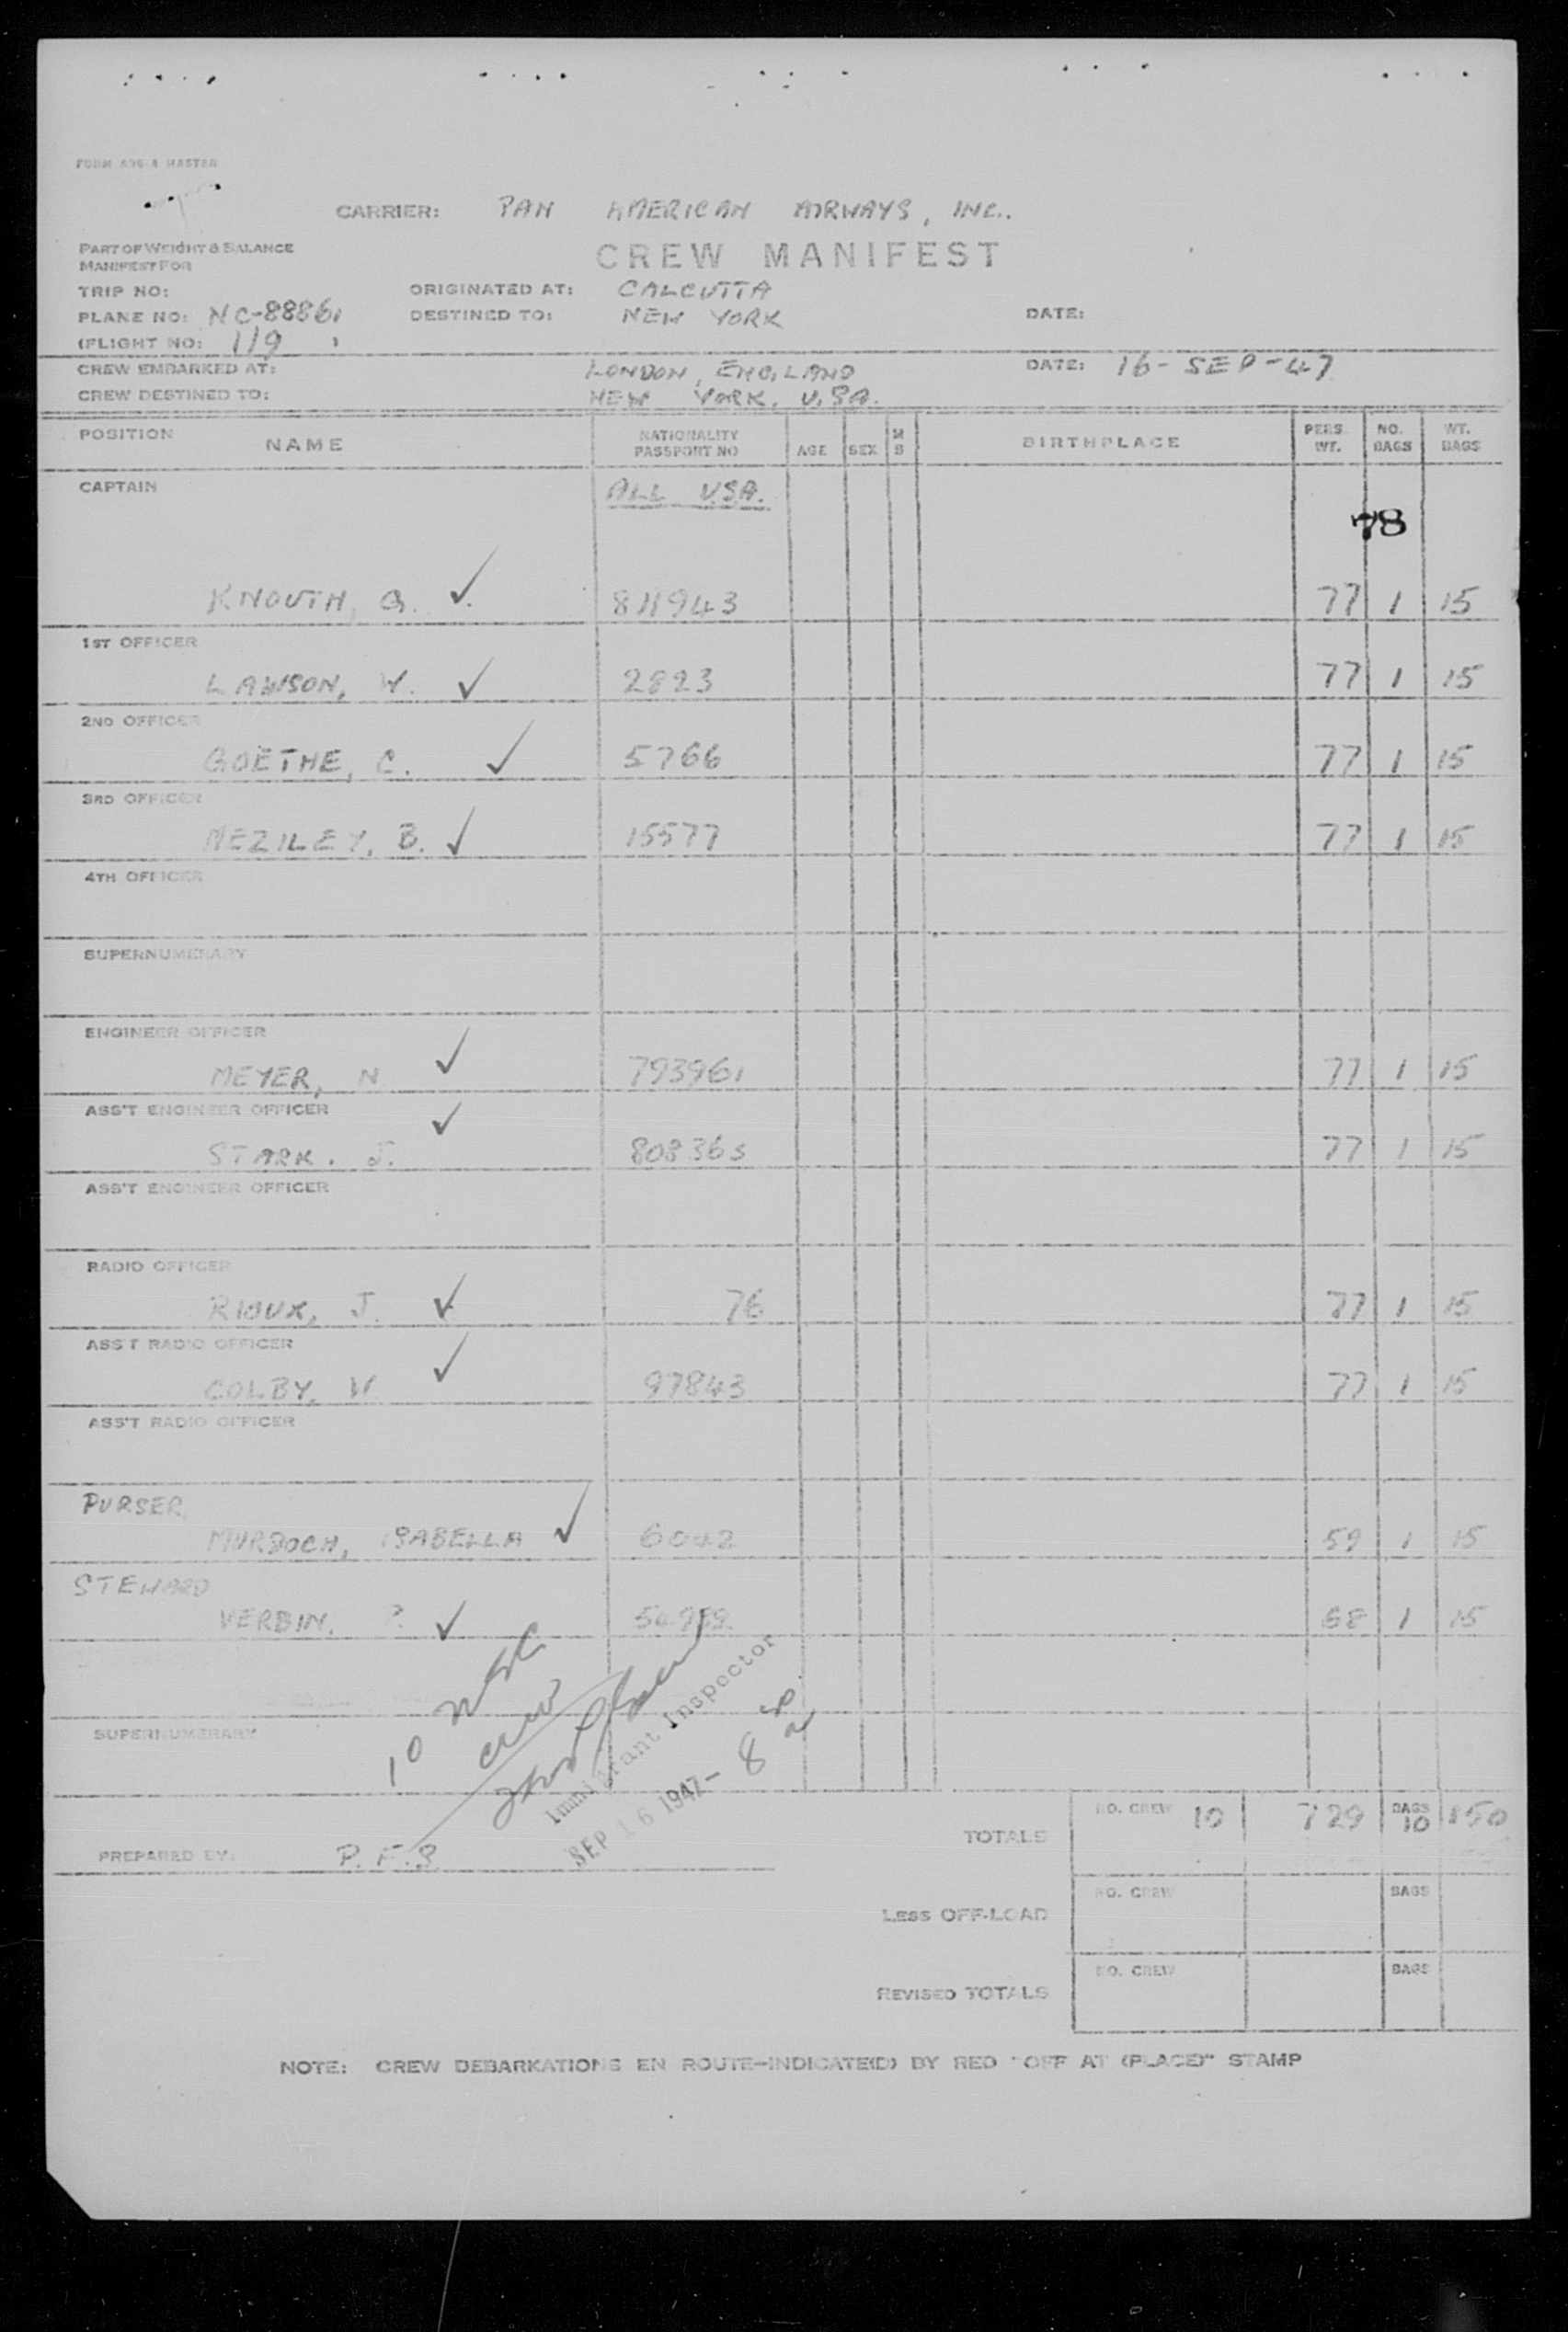 FORM 496-A MASTER
CARRIER: PAN AMERICAN AIRWAYS, INC.
PART OF WEIGHT & BALANCE
MANIFEST FOR
CREW MANIFEST
TRIP NO:
ORIGINATED AT: CALCUTTA
PLANE NO: NC-88861
DESTINED TO: NEW YORK
DATE:
(FLIGHT NO: 119 )
CREW EMBARKED AT: LONDON, ENGLAND
DATE: 16-SEP-47
CREW DESTINED TO: NEW YORK, U.S.A.
POSITION NAME NATIONALITY PASSPORT NO AGE SEX M S BIRTHPLACE PERS. WT. NO. BAGS WT. BAGS
CAPTAIN ALL U.S.A.
78
KNOUTH, G. ✓ 811943 77 1 15
1ST OFFICER
LAWSON, W. ✓ 2823 77 1 15
2ND OFFICER
GOETHE, C. ✓ 5766 77 1 15
3RD OFFICER
NEZILEY, B. ✓ 15577 77 1 15
4TH OFFICER
SUPERNUMERARY
ENGINEER OFFICER
MEYER, N ✓ 793961 77 1 15
ASS'T ENGINEER OFFICER
STARK, J. ✓ 808365 77 1 15
ASS'T ENGINEER OFFICER
RADIO OFFICER
RIOUX, J. ✓ 76 77 1 15
ASS'T RADIO OFFICER
COLBY, W ✓ 97843 77 1 15
ASS'T RADIO OFFICER
PURSER
MURDOCH, ISABELLA ✓ 6042 59 1 15
STEWARD
VERBIN, ✓ 1 15
10 USC
crew
Immigrant Inspector
SEP 16 1947 - 8
SUPERNUMERARY
TOTALS NO. CREW 10 729 BAGS 10 150
PREPARED BY: P.F.S
LESS OFF-LOAD NO. CREW BAGS
REVISED TOTALS NO. CREW BAGS
NOTE: CREW DEBARKATIONS EN ROUTE-INDICATE(D) BY RED "OFF AT (PLACE)" STAMP